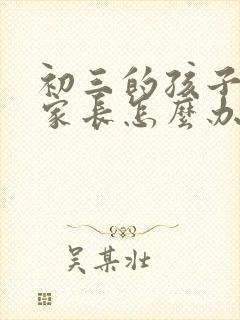 初三的孩子
家长怎么办
吴某壮